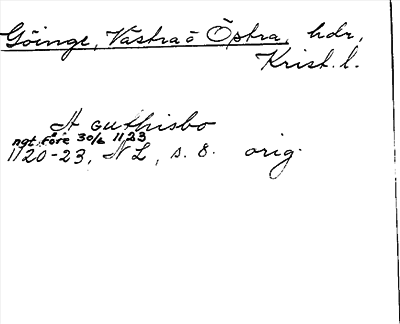 Göinge, Västra o Östra, hdr,
Krist. l.
A guthisbo
ngt före 30/6 1123
1120-23, N L, s. 8. orig.